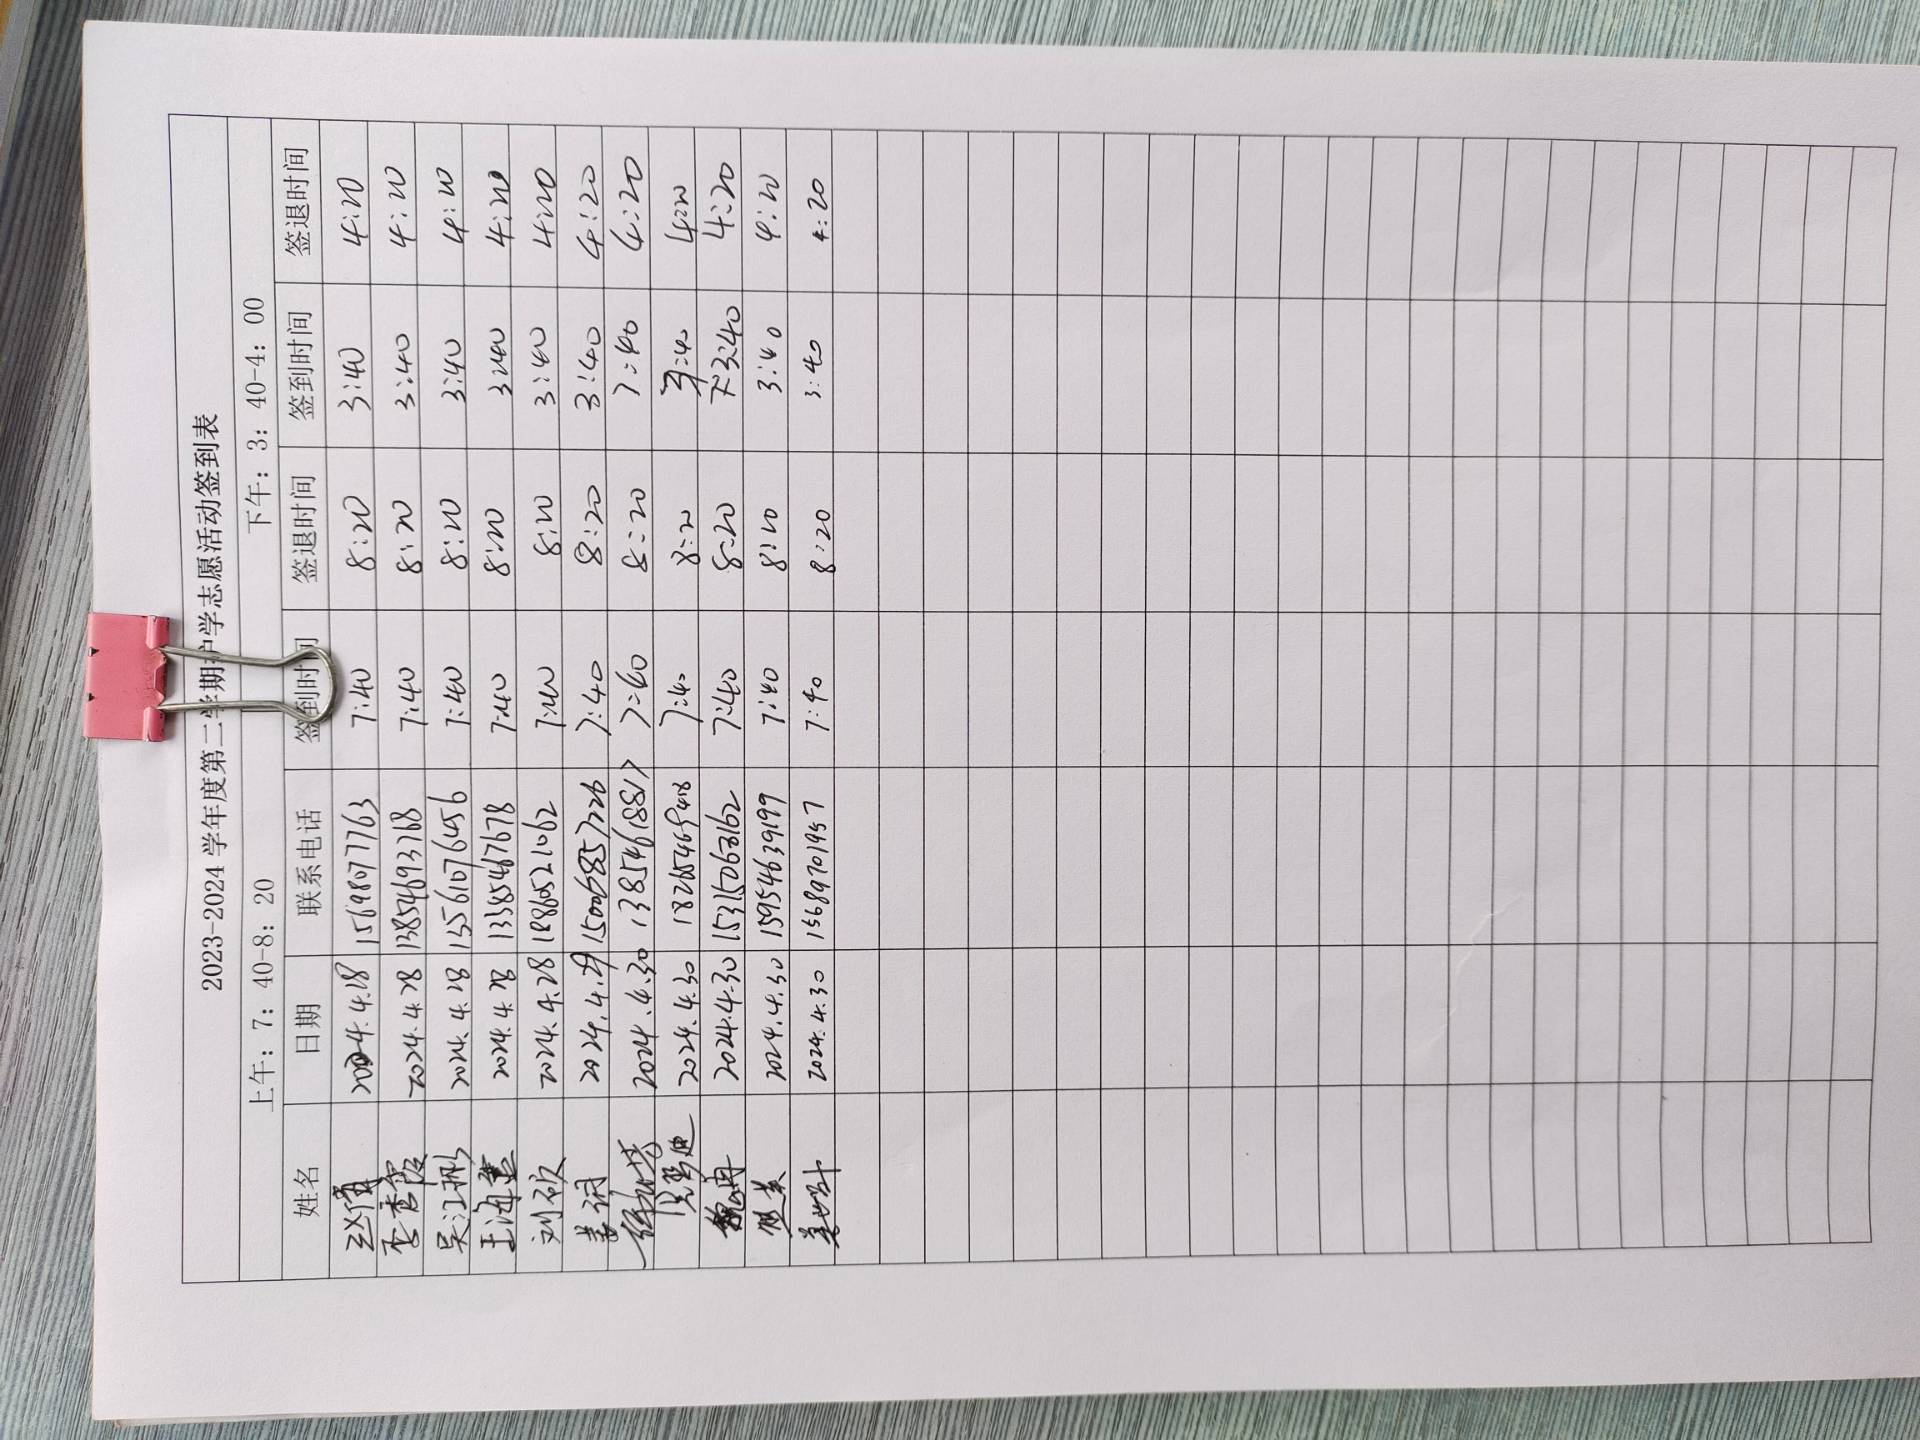 2023-2024 学年度第二学期护学志愿活动签到表
上午：7：40-8：20 下午：3：40-4：00
姓名 日期 联系电话 签到时间 签退时间 签到时间 签退时间
2024.4.28 15698077763 7:40 8:20 3:40 4:20
李香霞 2024.4.28 13854693768 7:40 8:20 3:40 4:20
吴江珊 2024.4.28 15561076456 7:40 8:20 3:40 4:20
王海燕 2024.4.28 13385467678 7:40 8:20 3:40 4:20
刘欣 2024.4.28 18860521062 7:40 8:20 3:40 4:20
姜训 2024.4.29 15006857226 7:40 8:20 3:40 4:20
2024.4.30 13854618817 7:40 8:20 7:40 4:20
2024.4.30 18265469418 7:40 8:20 3:40 4:20
魏冉 2024.4.30 15315063162 7:40 8:20 3:40 4:20
2024.4.30 15954639199 7:40 8:20 3:40 4:20
2024.4.30 15689701957 7:40 8:20 3:40 4:20